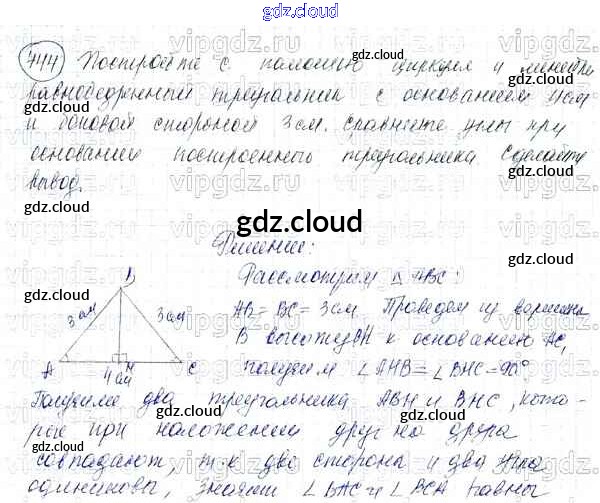 gdz.cloud
744 Постройте с помощью циркуля и линейки
равнобедренный треугольник с основанием 4 см
и боковой стороной 3 см. Сравните углы при
основании построенного треугольника. Сделайте
вывод.
gdz.cloud
Решение:
Рассмотрим △ ABC:
AB = BC = 3 см. Проведем из вершины
B высоту BH к основанию AC,
получим ∠AHB = ∠BHC = 90°,
B
3 см 3 см
A H C
4 см
Получили два треугольника ABH и BHC, кото-
рые при наложении друг на друга
совпадают, т.к две стороны и два угла
одинаковы, значит ∠BAC и ∠BCA равны